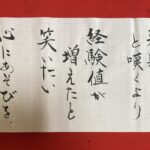 と嘆くより
経験値が
増えたと
笑いたい
心にあそびを。